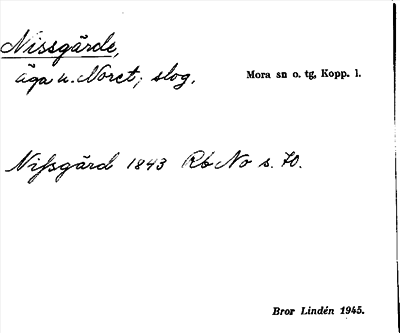 Nissgärde,
äga u. Noret; slog. Mora sn o. tg, Kopp. l.
Nifsgärd 1843 Rb No s. 70.
Bror Lindén 1945.